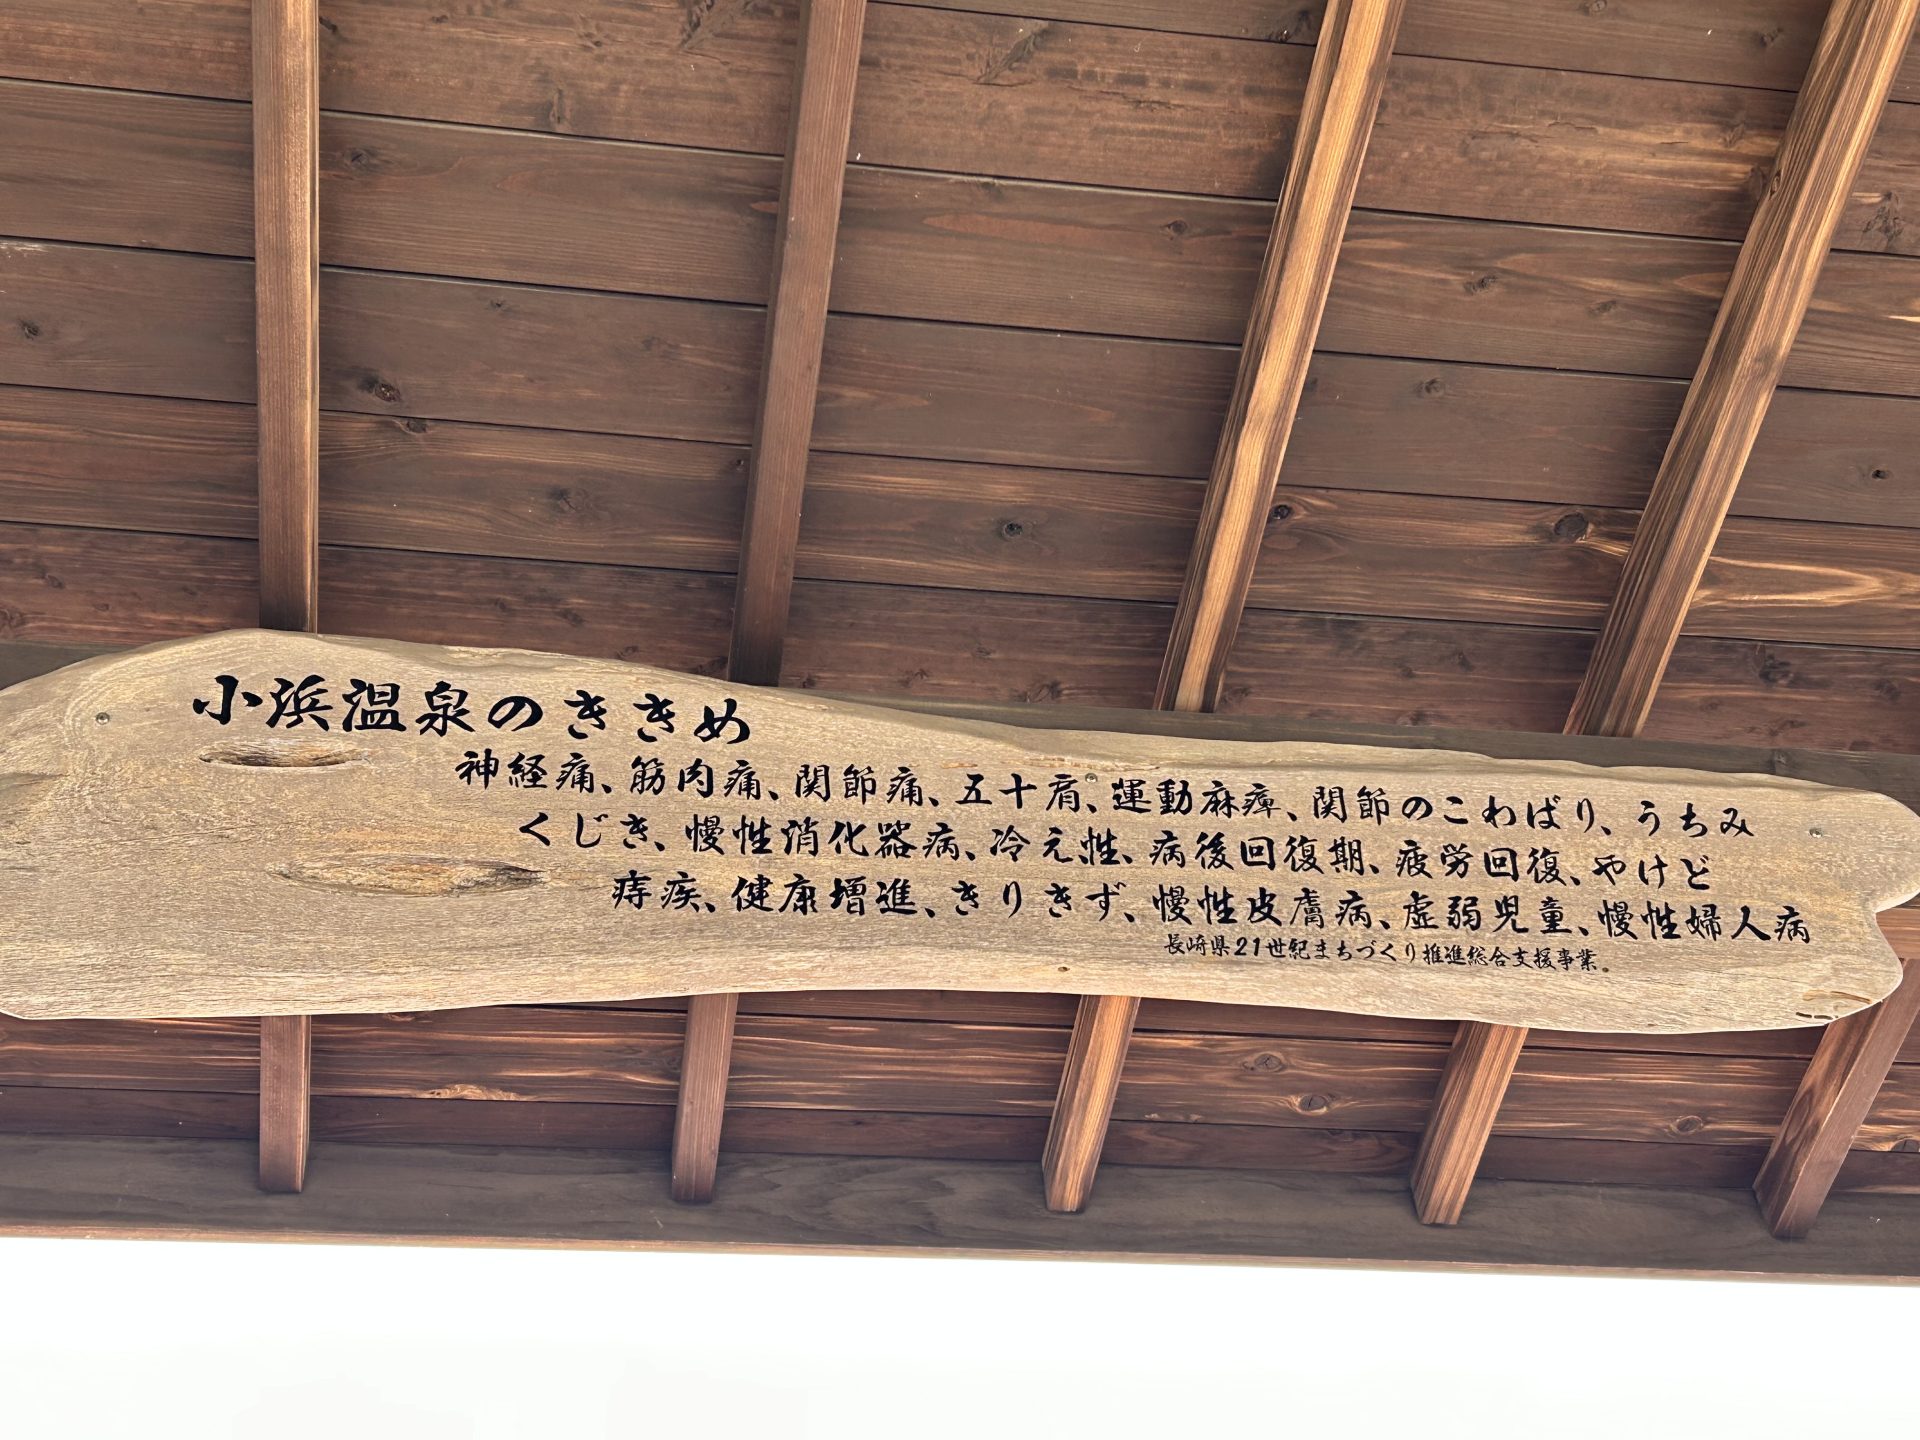 小浜温泉のききめ
神経痛、筋肉痛、関節痛、五十肩、運動麻痺、関節のこわばり、うちみ
くじき、慢性消化器病、冷え性、病後回復期、疲労回復、やけど
痔疾、健康増進、きりきず、慢性皮膚病、虚弱児童、慢性婦人病
長崎県21世紀まちづくり推進総合支援事業。